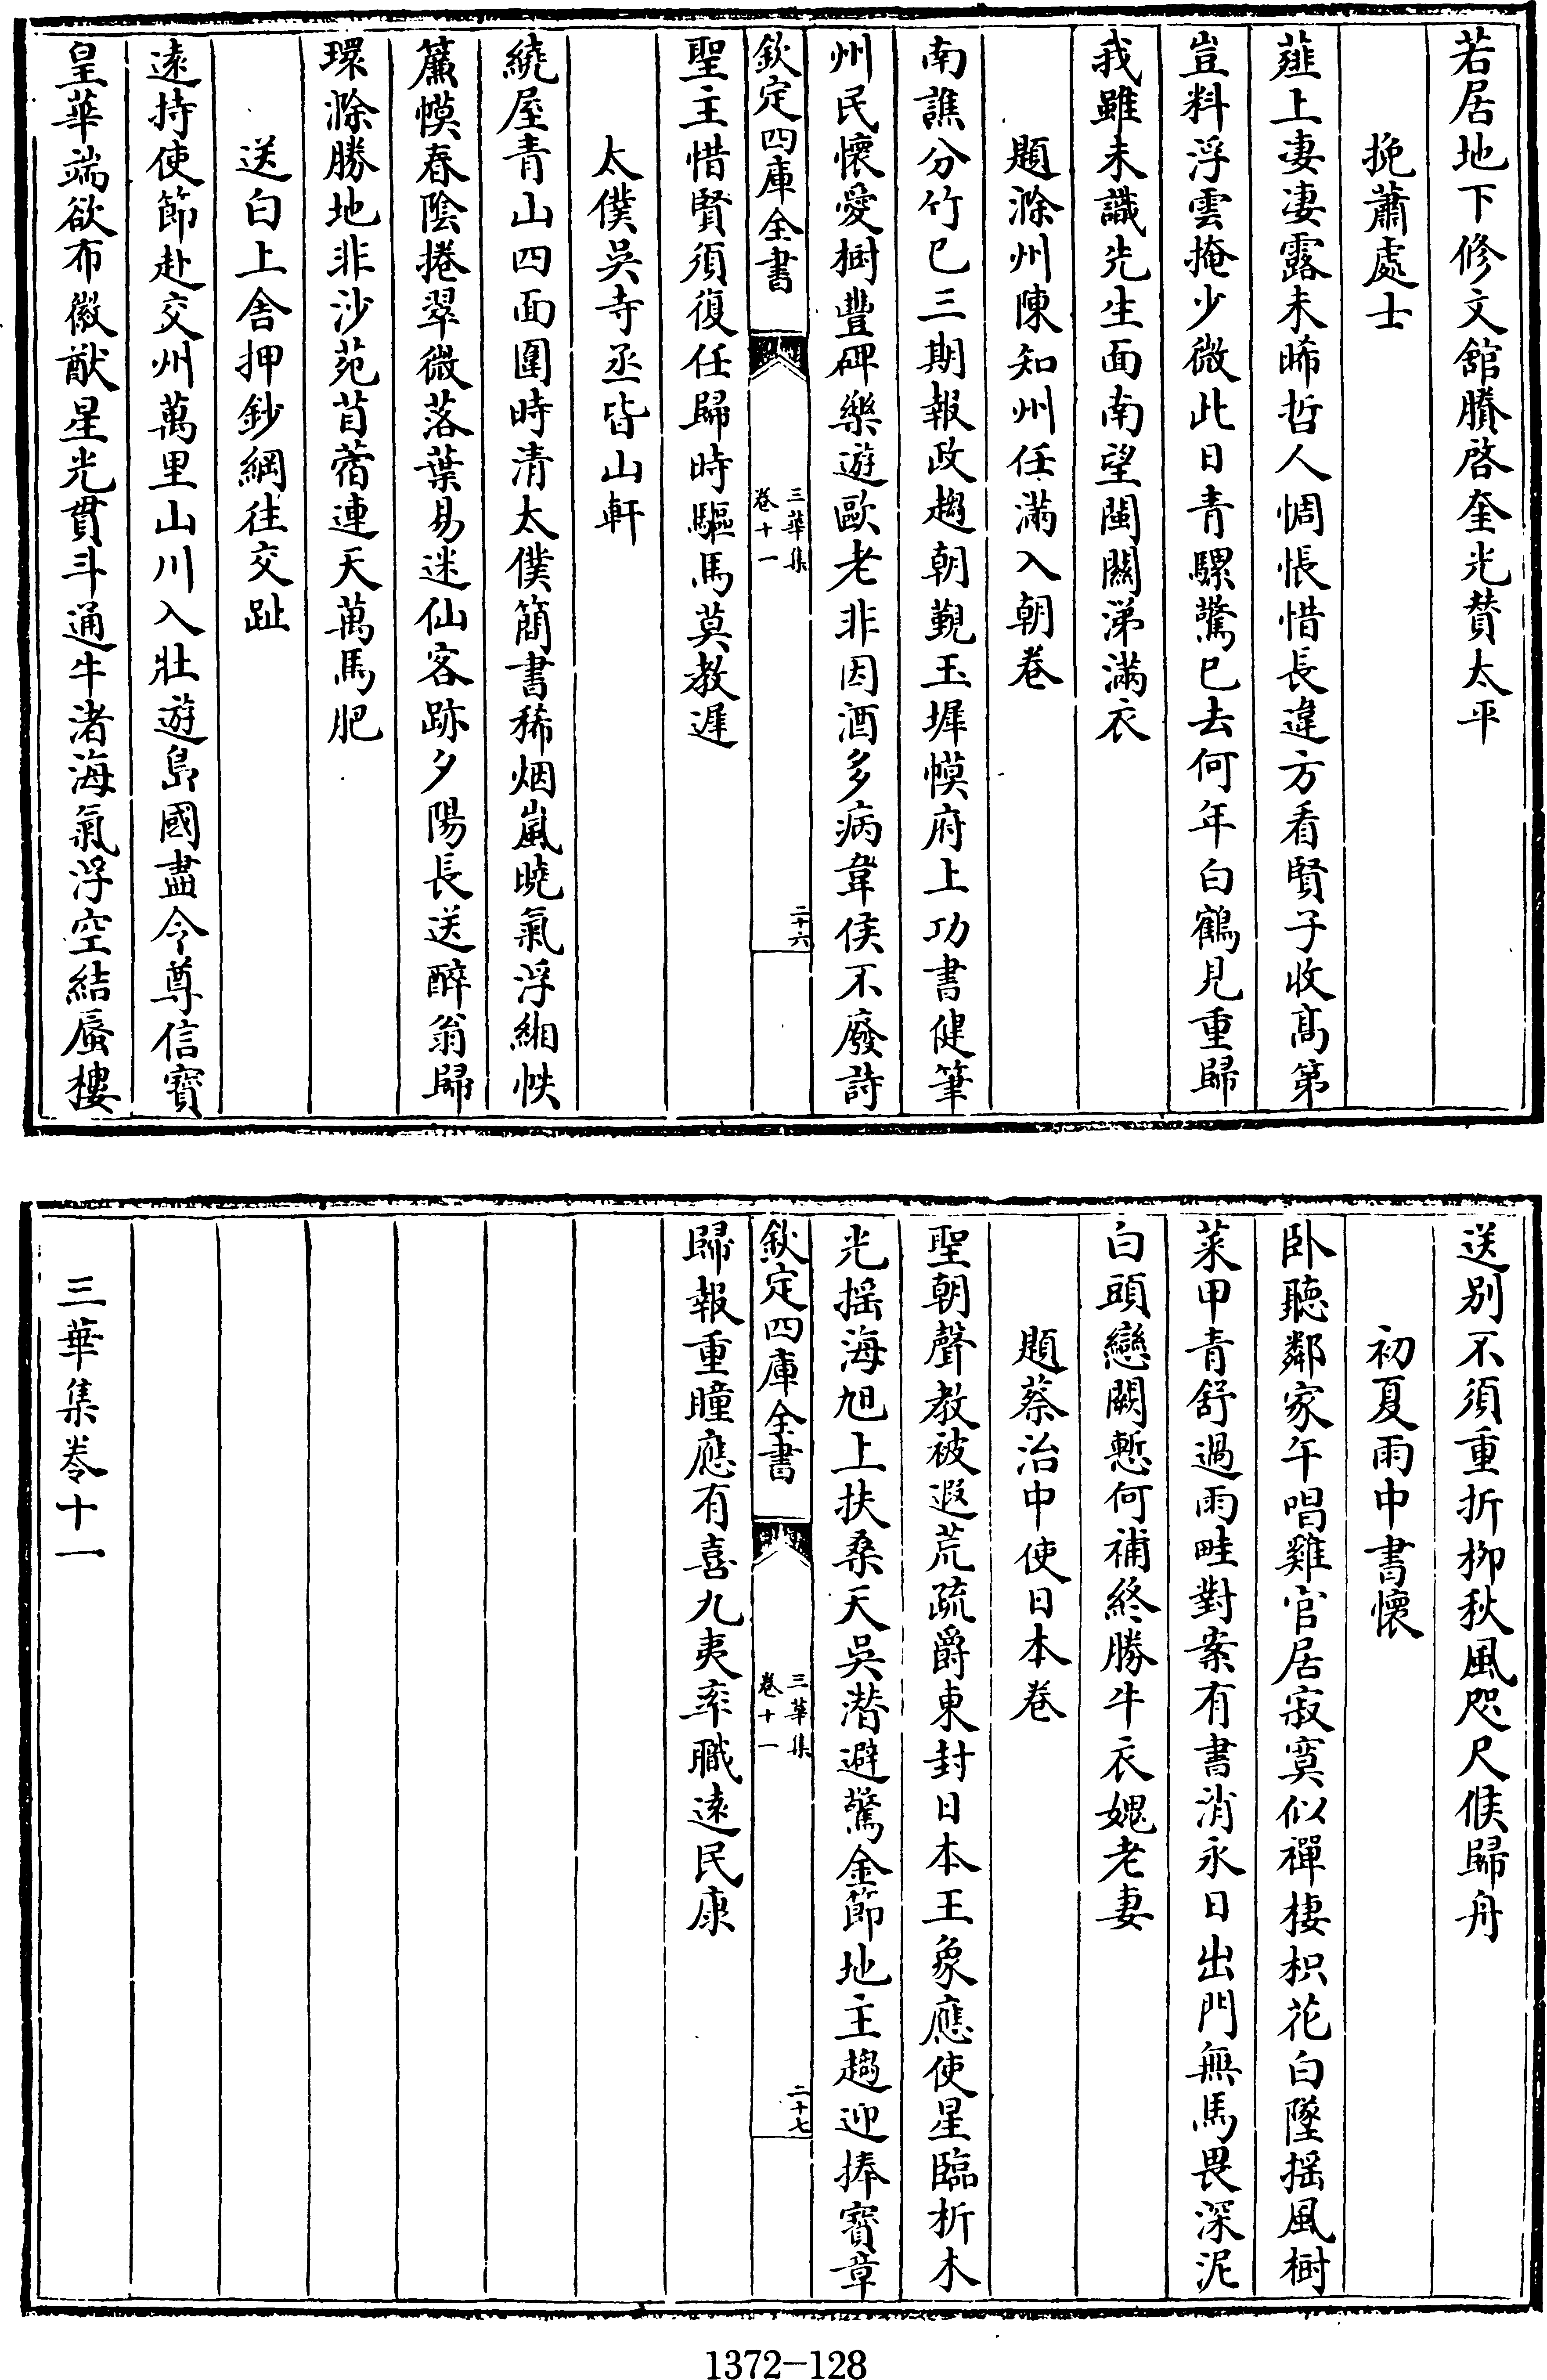 若居地下修文館賸啓奎光賛太平
挽蕭處士
薤上凄凄露未晞哲人惆悵惜長違方看賢子收高第
豈料浮雲掩少微此日青騾驚已去何年白鶴見重歸
我雖未識先生面南望閩關涕滿衣
題滁州陳知州任滿入朝卷
南譙分竹已三期報政趨朝覲玉墀幙府上功書健筆
州民懷愛樹豐碑樂遊歐老非因酒多病韋侯不廢詩
欽定四庫全書
三華集
卷十一
二十六
聖主惜賢須復任歸時驅馬莫教遲
太僕吳寺丞皆山軒
繞屋青山四面圍時清太僕簡書稀烟嵐曉氣浮緗帙
簾幙春陰捲翠微落葉易迷仙客跡夕陽長送醉翁歸
環滁勝地非沙苑苜蓿連天萬馬肥
送白上舍押鈔綱往交趾
遠持使節赴交州萬里山川入壯遊島國盡今尊信寶
皇華端欲布徽猷星光貫斗通牛渚海氣浮空結蜃樓
送别不須重折柳秋風咫尺候歸舟
初夏雨中書懷
卧聽鄰家午唱雞官居寂寞似禪棲枳花白墜揺風樹
菜甲青舒過雨畦對案有書消永日出門無馬畏深泥
白頭戀闕慙何補終勝牛衣媿老妻
題蔡治中使日本卷
聖朝聲教被遐荒疏爵東封日本王象應使星臨析木
光揺海旭上扶桑天吳潜避驚金節地主趨迎捧寳章
欽定四庫全書
三華集
卷十一
二十七
歸報重瞳應有喜九夷率職遠民康
三華集卷十一
1372-128